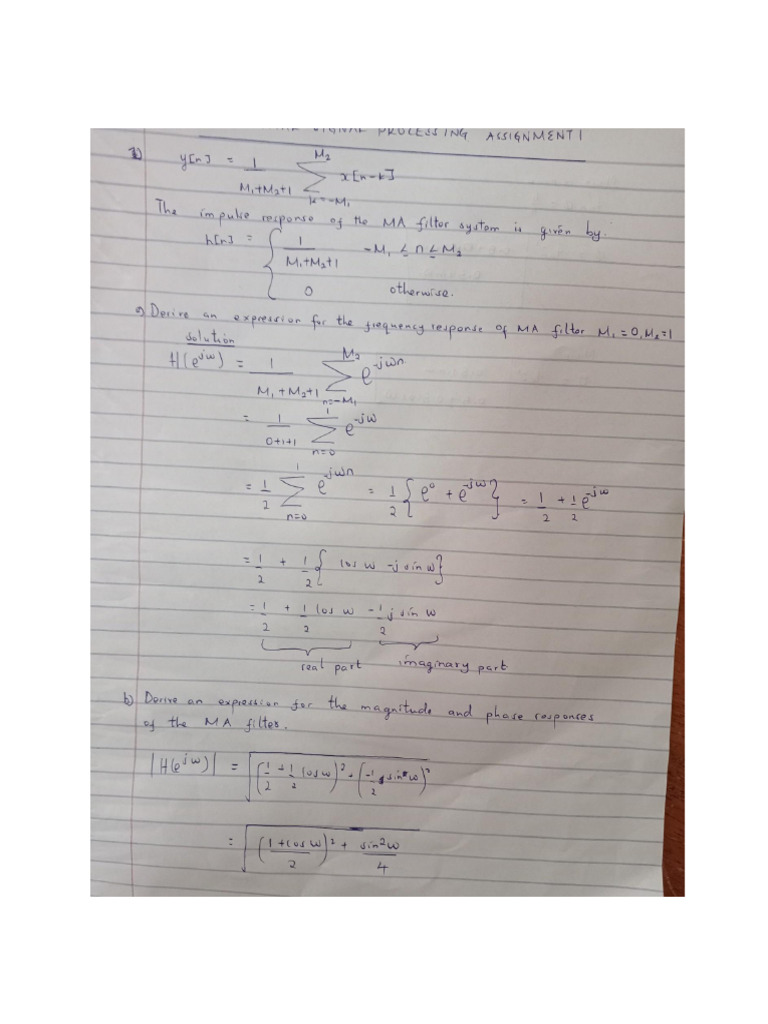 SIGNAL PROCESSING ASSIGNMENT 1
y[n] = 1/(M₁+M₂+1) Σ_{k=-M₁}^{M₂} x[n-k]
The impulse response of the MA filter system is given by:
h[n] = { 1/(M₁+M₂+1) -M₁ ≤ n ≤ M₂
0 otherwise.
a) Derive an expression for the frequency response of MA filter M₁=0, M₂=1
solution
H(e^{jω}) = 1/(M₁+M₂+1) Σ_{n=-M₁}^{M₂} e^{-jωn}
= 1/(0+1+1) Σ_{n=0}^{1} e^{-jω}
= 1/2 Σ_{n=0}^{1} e^{-jωn} = 1/2 { e⁰ + e^{-jω} } = 1/2 + 1/2 e^{-jω}
= 1/2 + 1/2 { cos ω - j sin ω }
= 1/2 + 1/2 cos ω - 1/2 j sin ω
real part imaginary part
b) Derive an expression for the magnitude and phase responses
of the MA filter.
|H(e^{jω})| = √((1/2 + 1/2 cos ω)² + (-1/2 sin ω)²)
= √(((1+cos ω)/2)² + sin²ω/4)